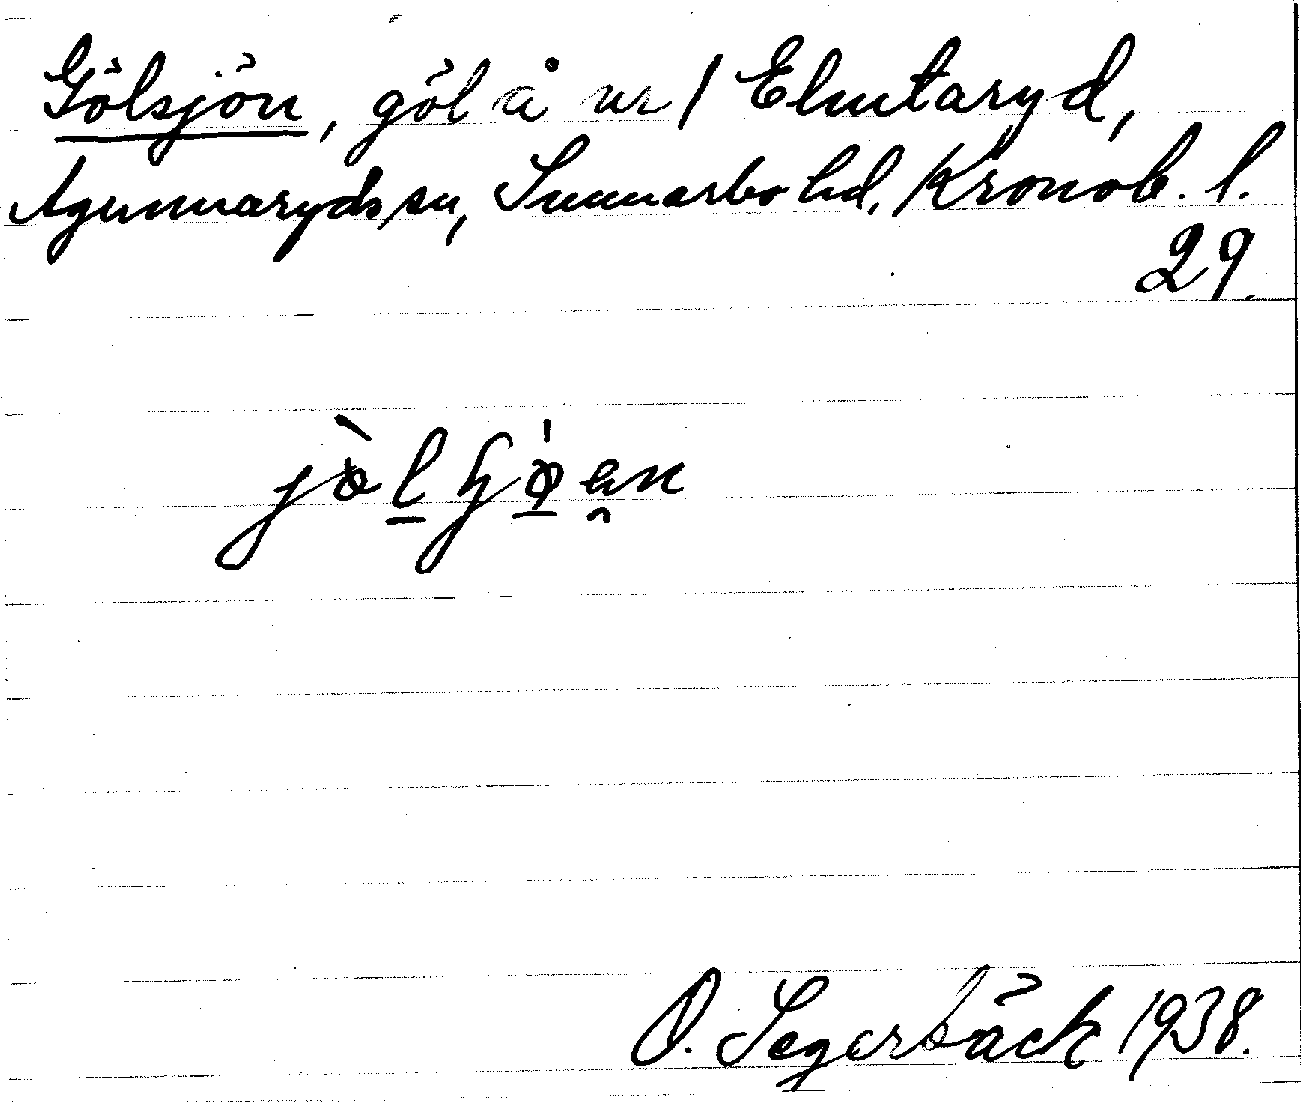 Gölsjön, göl å nr 1 Elmtaryd,
Agunnaryds sn, Sunnarbo hd, Kronob. l.
29.
O. Segerbäck 1938.